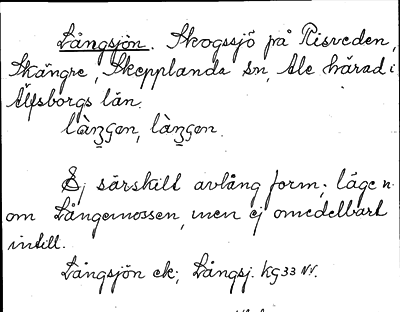 Långsjön. Skogssjö på Risveden,
Skångre, Skepplanda sn, Ale härad i
Älfsborgs län.
Ej särskilt avlång form; läge n.
om Långemossen, men ej omedelbart
intill.
Långsjön ek; Långsj. kg 33 NV.